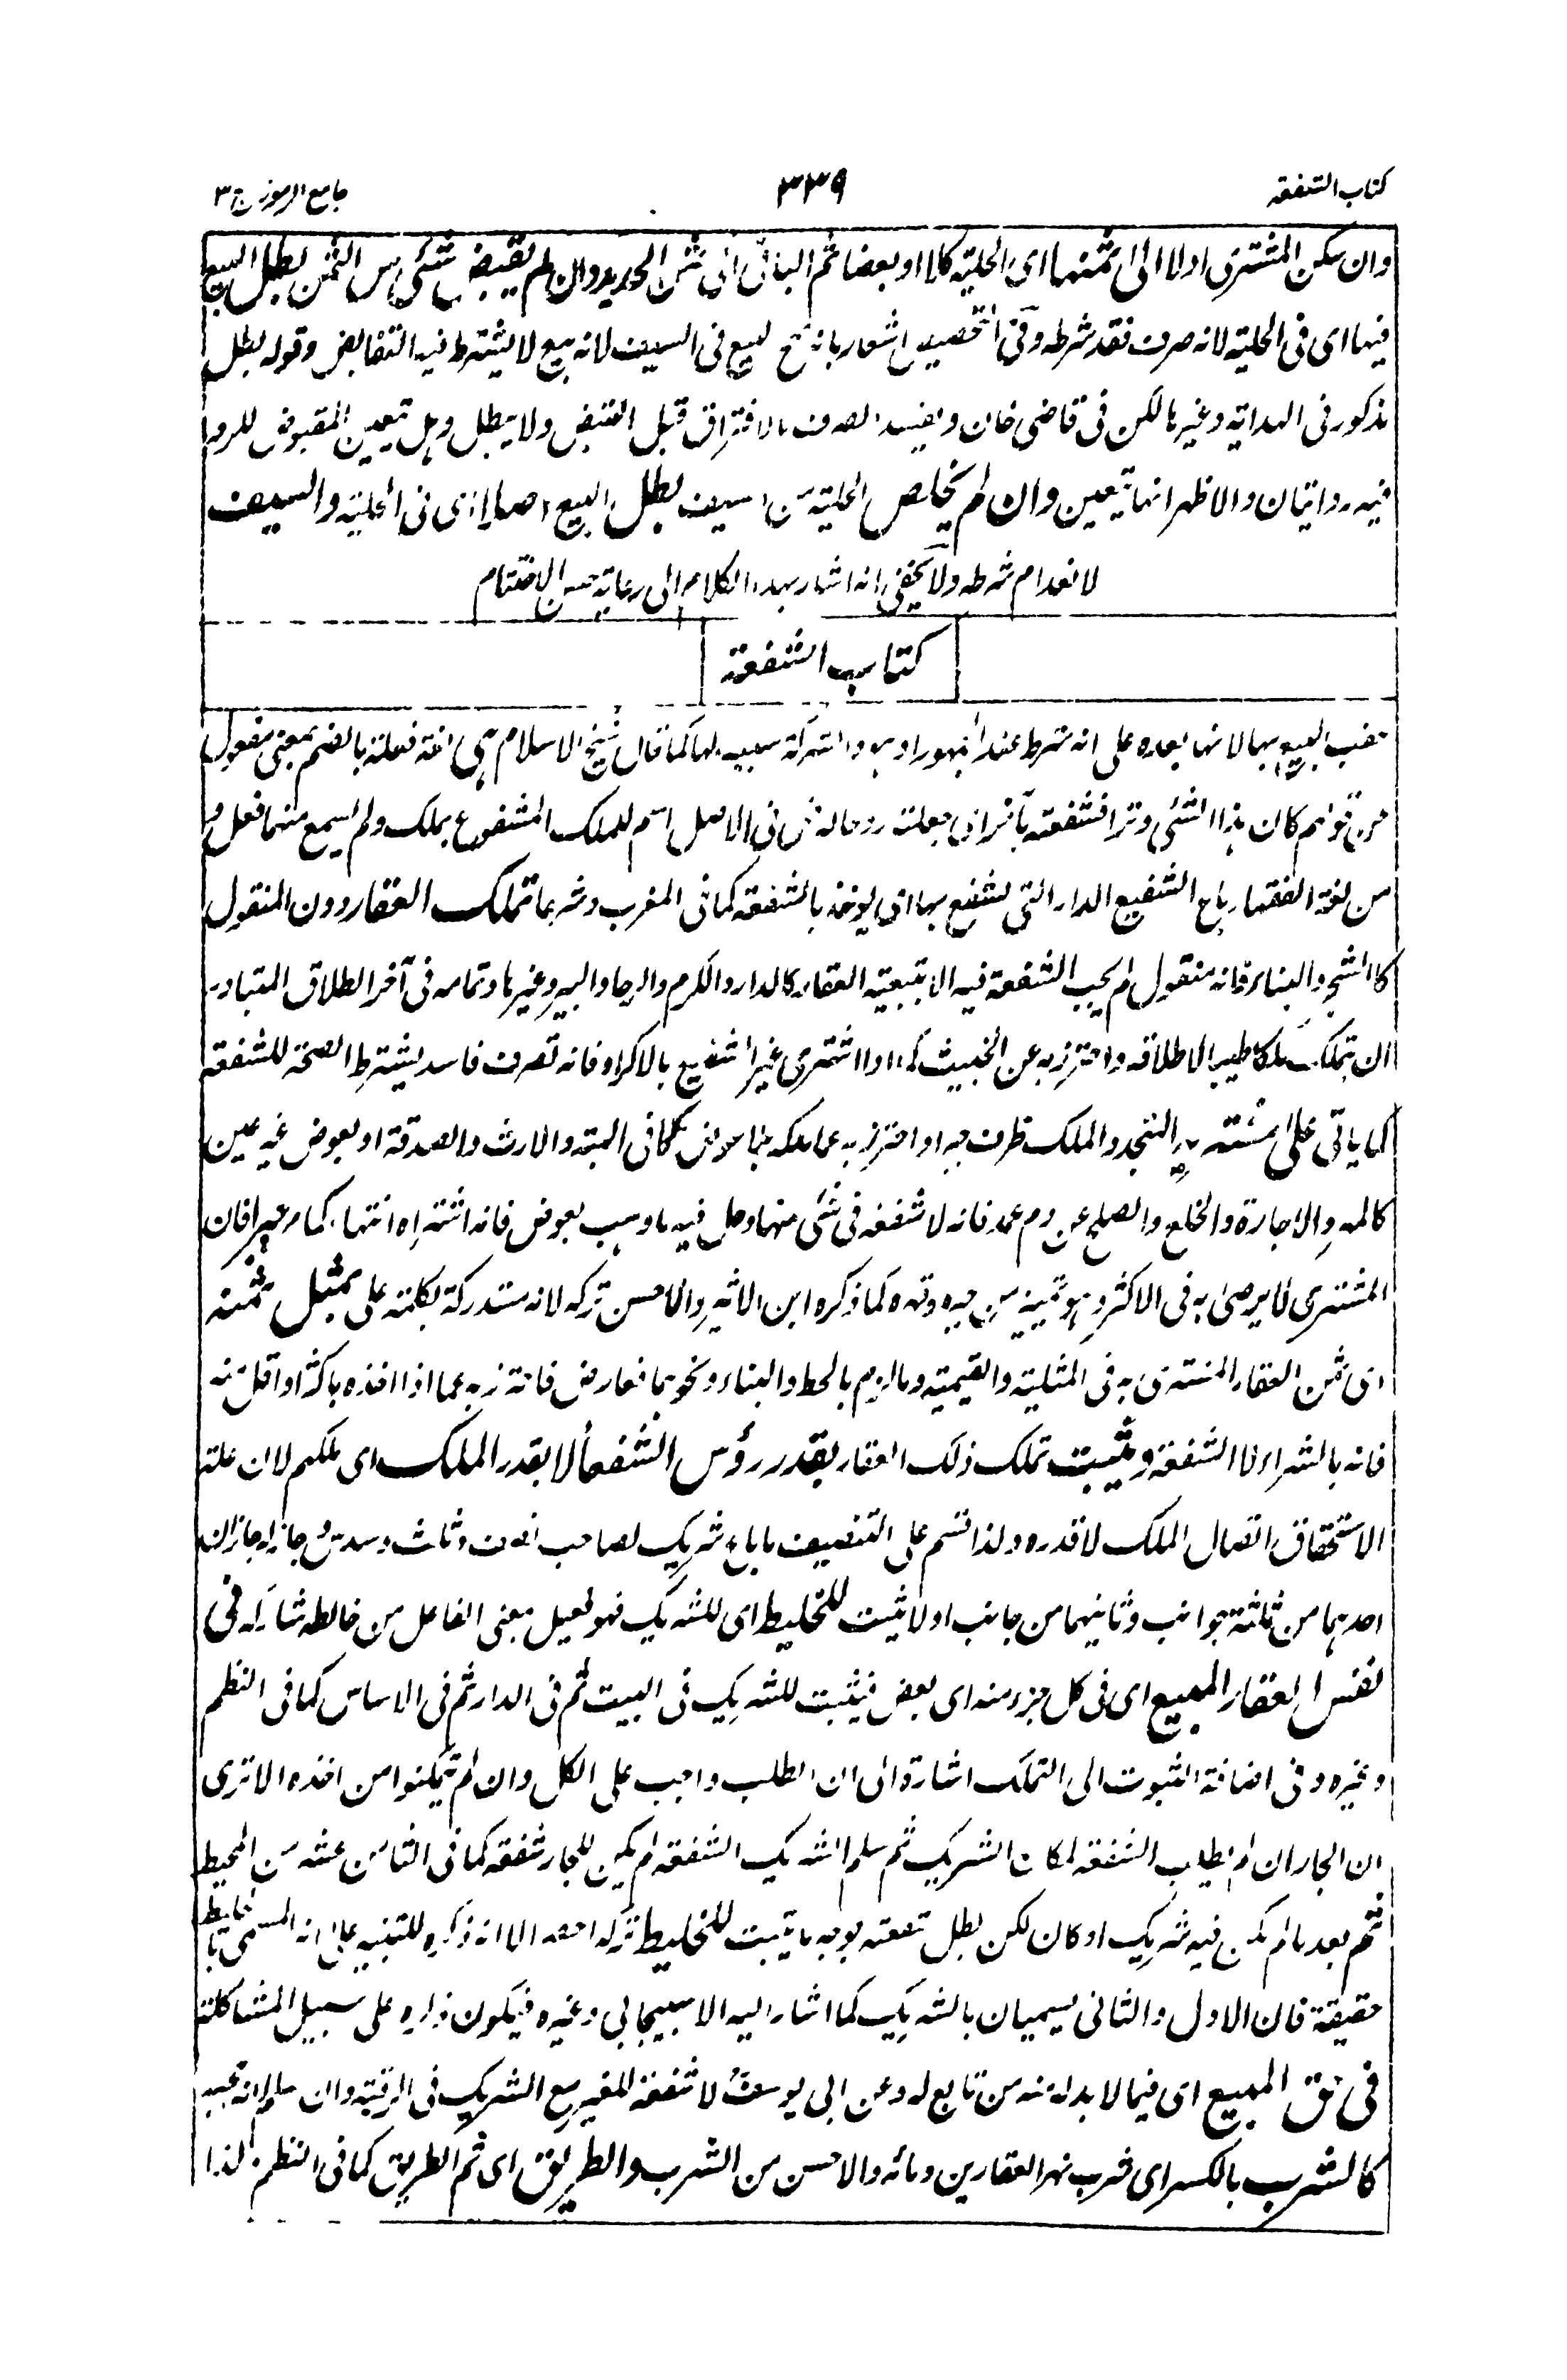 كتاب الشفعة
٣٣٩
جامع الرموز ج ٣
وان سكن المشترى اولا الى ثمنها اى الحلية كلا او بعضا ثم الباقى الى ثمن الحديد وان لم يقبض شئ من الثمن بطل البيع
فيها اى فى الحلية لانه صرف فقد شرطه وفى التخصيص اشعار بانه صح البيع فى السيف لانه بيع لا يشترط فيه التقابض وقوله بطل
مذكور فى الهداية وغيرها لكن فى قاضى خان ويفسد الصرف بالافتراق قبل القبض ولا يبطل وهل تتعين المقبوض للرد
فيه روايتان والاظهر انها تتعين وان لم يخلص الحلية من السيف بطل البيع اصلا اى فى الحلية والسيف
لانعدام شرطه ولا يخفى انه اشار بهذا الكلام الى رعاية حسن الاختتام
كتاب الشفعة
عقب البيع بها لانها بعده على انه شرط عند الجمهور والشركة سبب لها كما قال شيخ الاسلام هى لغة فعلة بالضم بمعنى مفعول
من قولهم كان هذا الشئ وترا فشفعته بآخر اى جعلته زوجا له فهى فى الاصل اسم للملك المشفوع بملك ولم يسمع منها فعل و
من لغة الفقهاء باع الشفيع الدار التى يشفع بها اى يوخذ بالشفعة كما فى المغرب وشرعا تملك العقار دون المنقول
كالشجر والبناء فانه منقول لم يجب الشفعة فيه الا بتبعية العقار كالدار والكرم والرحا والبير وغيرها وتمامه فى آخر الطلاق المتبادر
ان تملك ملكا طيبا لاطلاقه واحترز به عن الخبيث كما اذا اشترى غير الشفيع بالاكراه فانه تصرف فاسد يشترط الصحة للشفعة
كما ياتى على مشتريه المتجدد الملك ظرف جبرا واحترز به عما ملكه بلا عوض كما فى الهبة والارث والصدقة او بعوض غير عين
كالمهر والاجارة والخلع والصلح عن دم عمد فانه لا شفعة فى شئ منها ودخل فيه ما وهب بعوض فانه اشتراه انتهاء كما مر جبرا فان
المشترى لا يرضى به فى الاكثر وهو تمييز من جبره وقهره كما ذكره ابن الاثير والاحسن تركه لانه مستدركة بكلمة على بمثل ثمنه
اى ثمن العقار المشترى به فى المثلية والقيمية وما لزم بالحط والبناء ونحوهما فعارض فاحترز به عما اذا اخذه باكثر او اقل منه
فانه بالشراء لا الشفعة ويثبت تملك ذلك العقار بقدر رؤس الشفعاء لا بقدر الملك اى ملكهم لان علة
الاستحقاق اتصال الملك لا قدره ولذا قسم على التنصيف ما باع شريك لصاحب نصف وثلث وسدس وجاز له جاران
احدهما من ثلثة جوانب وثانيهما من جانب اولا يثبت للخليط اى للشريك فهو فعيل بمعنى الفاعل من خالطه شاركه فى
نفس العقار المبيع اى فى كل جزء منه اى بعض فيثبت للشريك فى البيت ثم فى الدار ثم فى الاساس كما فى النظم
وغيره وفى اضافة الثبوت الى التملك اشارة الى ان الطلب واجب على الكل وان لم يتمكنوا من اخذه الا ترى
ان الجار ان لم يطلب الشفعة لمكان الشريك ثم سلم الشريك الشفعة لم يكن للجار شفعة كما فى الثامن عشر من المحيط
ثم بعد ما لم يكن فيه شريك او كان لكن بطل شفعته بوجه ما يثبت للخليط تركه اخصر الا انه ذكره للتنبيه على انه المسمى بالخليط
حقيقة فان الاول والثانى يسميان بالشريك كما اشار اليه الاسبيجابى وغيره فيكون ذكره على سبيل المشاكلة
فى حق المبيع اى فيما لا بد له منه من تابع له وعن ابى يوسف لا شفعة للغير مع الشريك فى الرقبة وان سلم لانه محجب
كالشرب بالكسر اى شرب نهر العقارين ومائه والاحسن من الشرب والطريق اى ثم الطريق كما فى النظم لذا